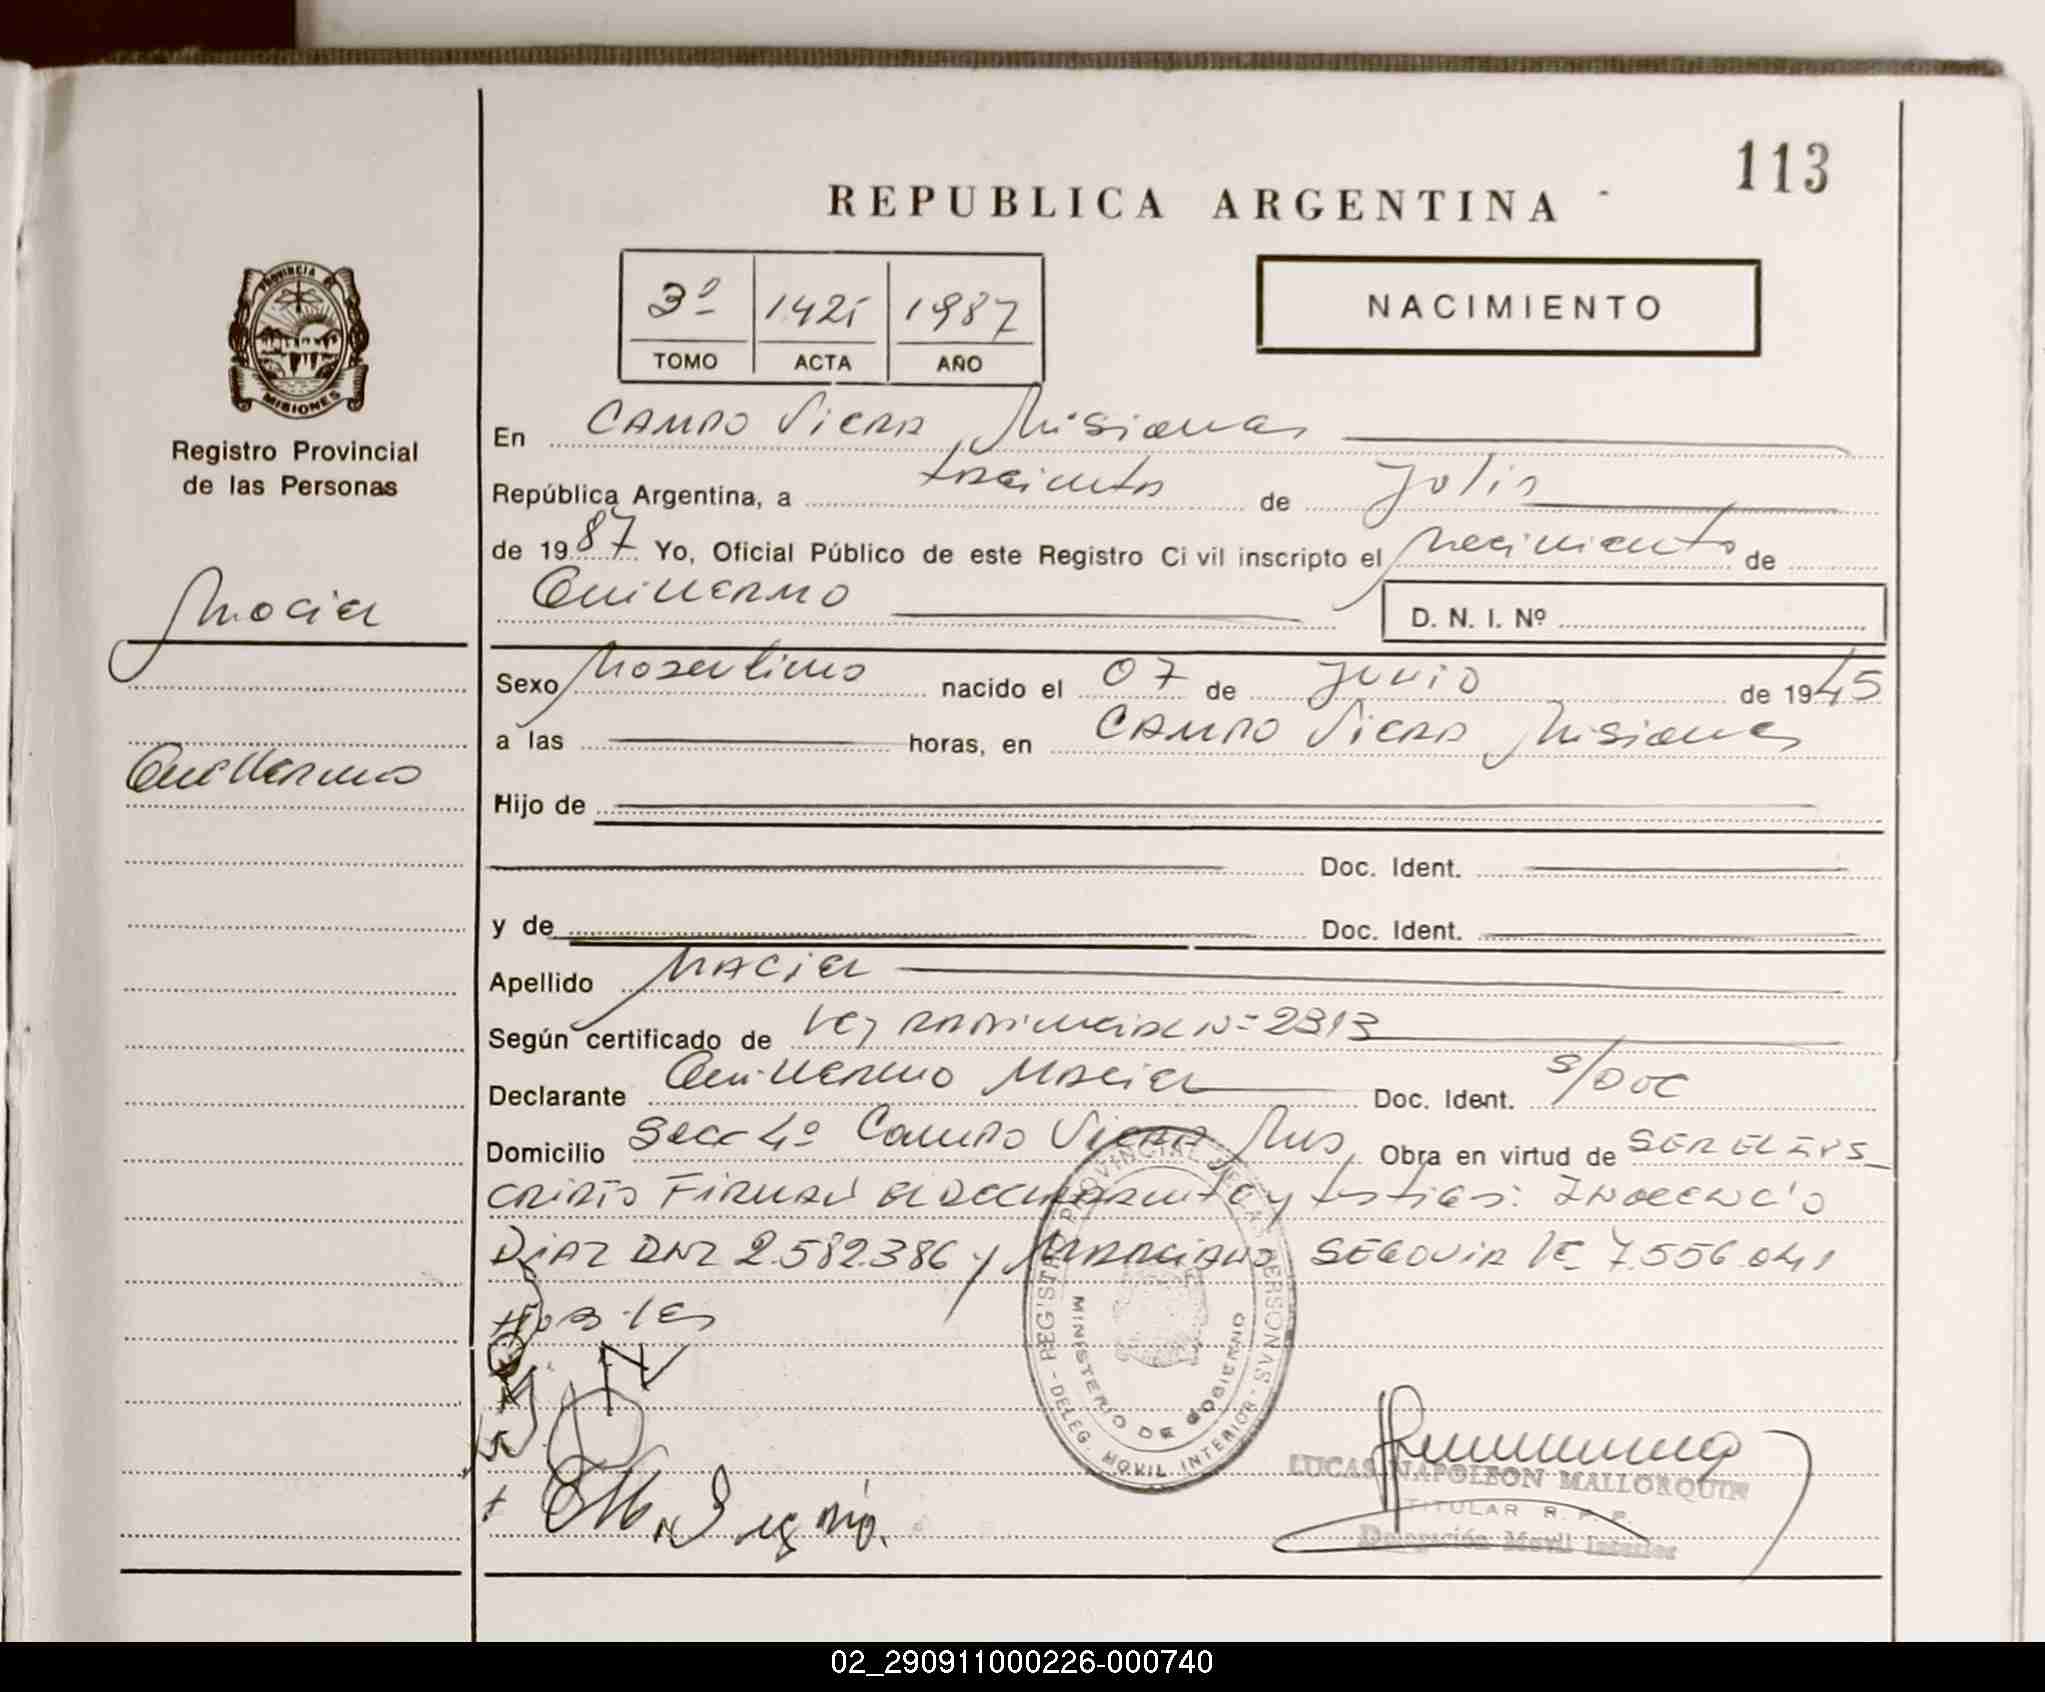 113
REPUBLICA ARGENTINA
3º 1425 1987
TOMO ACTA AÑO
NACIMIENTO
PROVINCIA DE
MISIONES
Registro Provincial
de las Personas
Maciel
Guillermo
En Campo Viera, Misiones
República Argentina, a treinta de Julio
de 1987 Yo, Oficial Público de este Registro Civil inscripto el Nacimiento de
Guillermo
D. N. I. Nº
Sexo Masculino nacido el 07 de Junio de 1945
a las horas, en Campo Viera Misiones
Hijo de
Doc. Ident.
y de Doc. Ident.
Apellido Maciel
Según certificado de Ley Provincial Nº 2313
Declarante Guillermo Maciel Doc. Ident. S/Doc
Domicilio Secc 4º Campo Viera Mnes, Obra en virtud de SER EL INS
CRIPTO FIRMAN el declarante y testigos: INOCENCIO
DIAZ DNI 2.582.386 y MARCIANO SEGOVIA LE 7.556.041
Habiles
REGISTRO PROVINCIAL DE LAS PERSONAS
MINISTERIO DE GOBIERNO
- DELEG. MOVIL INTERIOR -
LUCAS NAPOLEON MALLORQUIN
TITULAR R. P. P.
Delegación Movil Interior
02_290911000226-000740